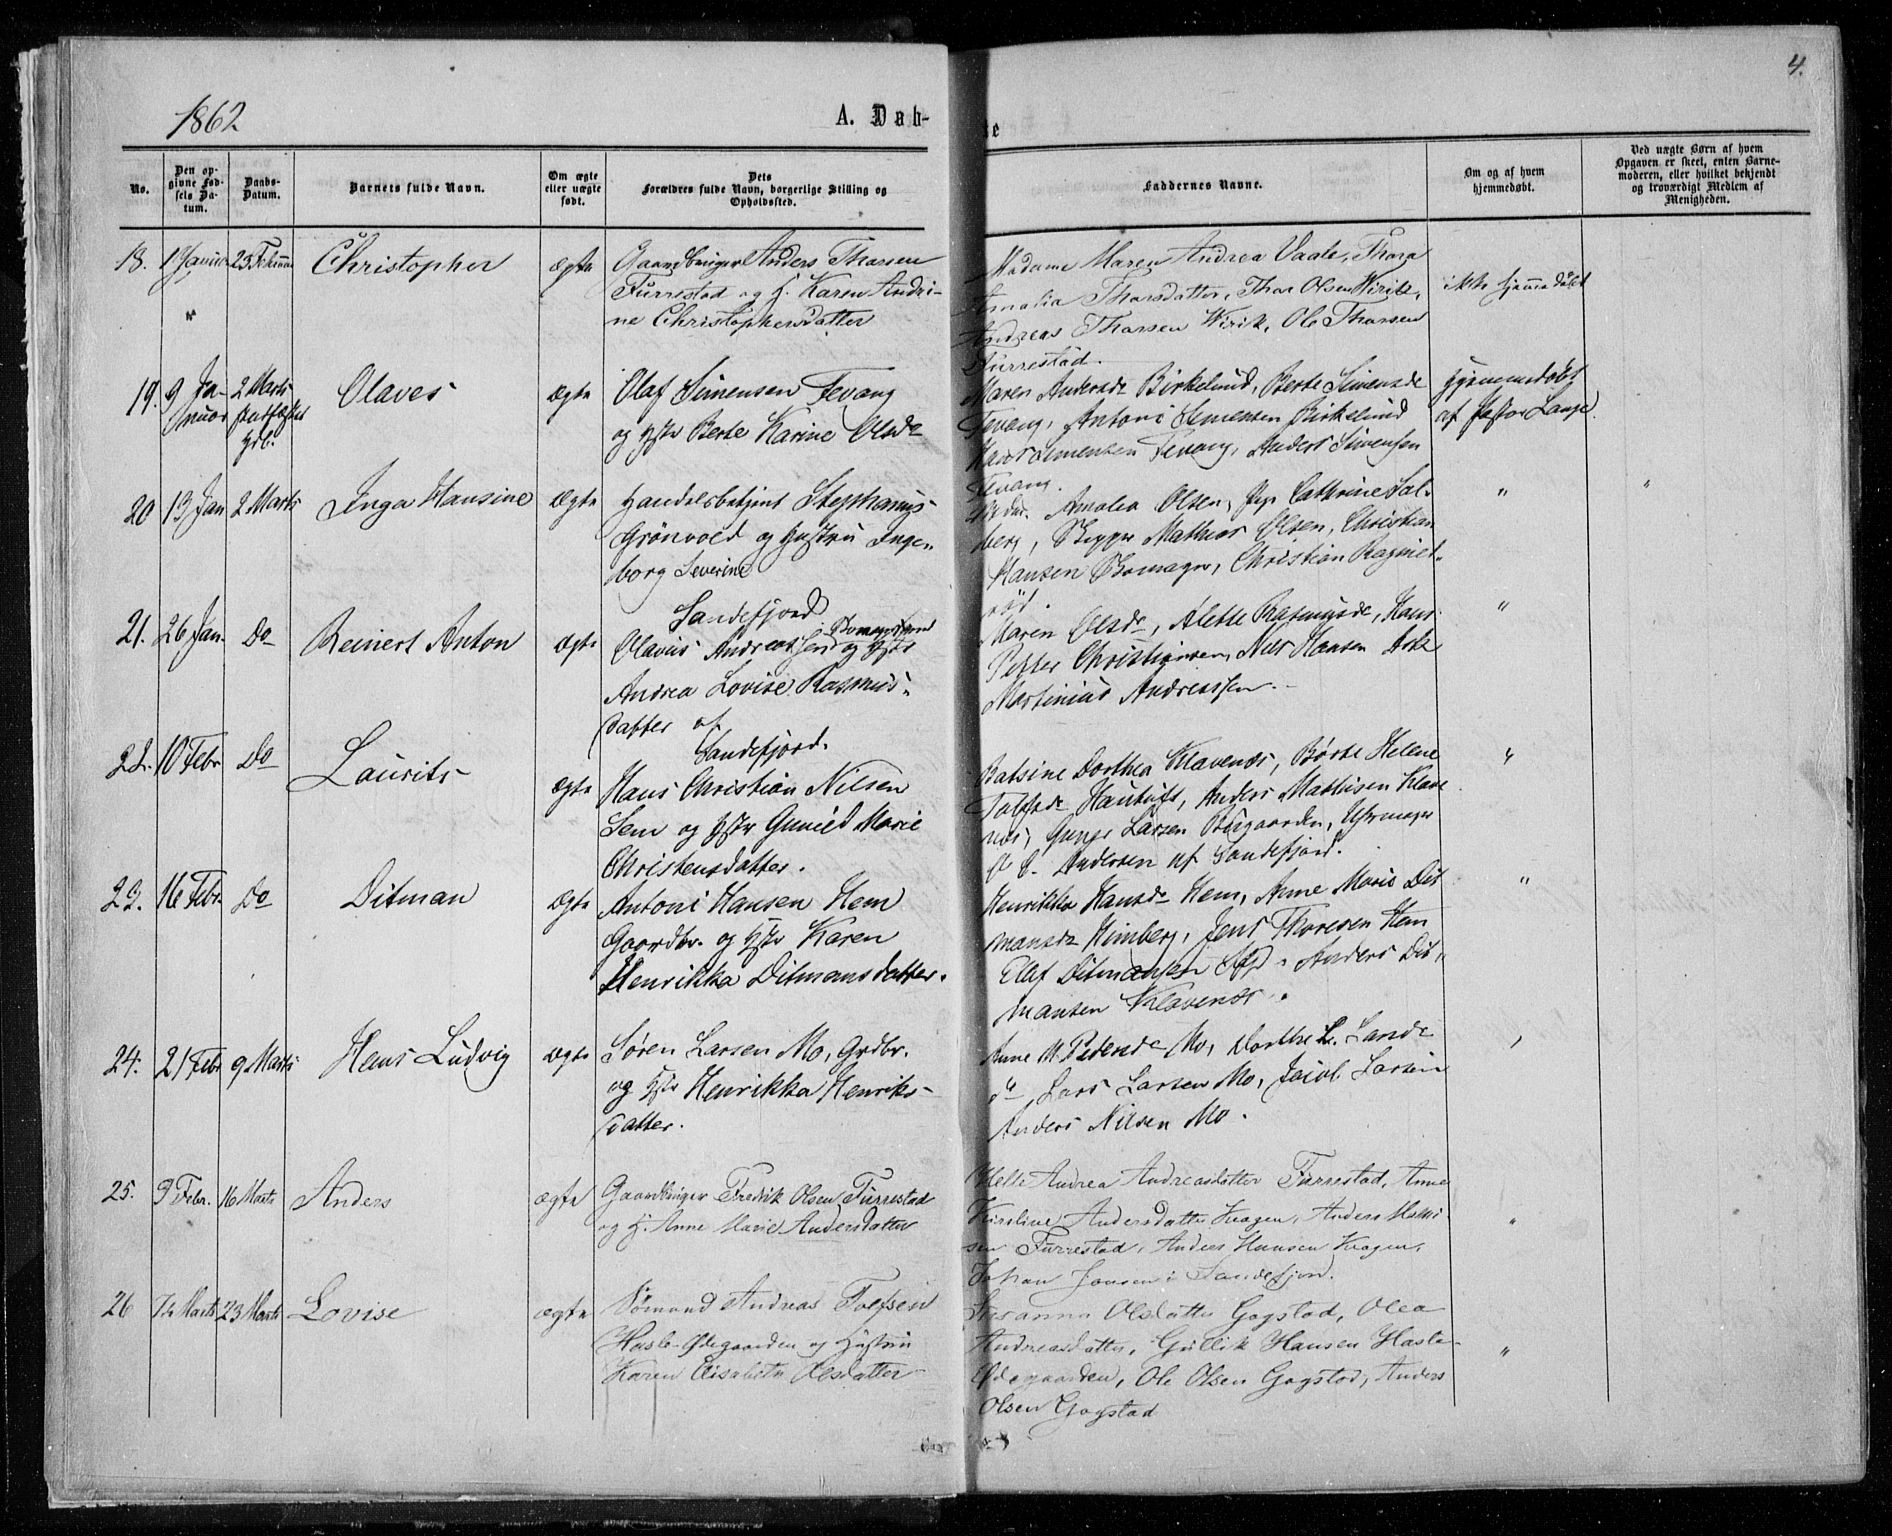 4.
1862
A. Døb-
te
No.
Den op-
givne Fød-
sels Da-
tum.
Daabs-
Datum.
Barnets fulde Navn.
Om ægte
eller uægte
født.
Dets
Forældres fulde Navn, borgerlige Stilling og
Opholdssted.
Faddernes Navne.
Om og af hvem
hjemmedøbt.
Ved uægte Børn af hvem
Opgaven er skeet, enten Barne-
moderen, eller hvilket bekjendt
og troværdigt Medlem af
Menigheden.
18. 1 Januar 23 Februar Christopher ægte Gaardbruger Anders Thorsen
Furrestad og H. Karen Andri-
ne Christophersdatter
Madame Maren Andrea Vaale, Thora
Amalia Thorsdatter, Thor Olsen Wirik,
Andreas Thorsen Wirik, Ole Thorsen
Furrestad.
ikke hjemmedøbt
19. 9 Ja-
nuar
2 Marts
stadfæstet
Hdb.
Olaves ægte Olaf Simensen Fevang
og Hstr Berte Karine Olsdr
Maren Andersdr Birkelund, Berte Simensdr
Fevang, Antoni Simensen Birkelund
Hans Simensen Fevang, Anders Simensen
Fevang.
Hjemmedøbt
af Pastor Lange.
20 13 Jan 2 Marts Inga Hansine ægte Handelsbetjent Stephanus
Grønvold og Hustru Inge-
borg Severine
Sandefjord.
Amalia Olsen, Jgr Cathrine Sol-
berg, Skipper Mathias Olsen, Christian
Hansen Skomager, Christian
rød.
"
"
21. 26 Jan. Do Reinert Anton ægte Olavus Andreassen og Hstr
Andrea Lovise Rasmus-
datter af
Sandefjord.
Maren Olsdr, Alette Rasmusdr, Hans
Petter Christiansen, Nils Hansen Ask
Martinius Andreassen.
"
22. 10 Febr Do Laurits ægte Hans Christian Nilsen
Sem og Hstr Gunild Marie
Christensdatter.
Batsine Dorthea Klavenes, Børte Helene
Anders Mathisen Klave
nes, Larsen Bugaarden, Uhrmager
Andersen af Sandefjord.
"
23. 16 Febr Do Ditman ægte Antoni Hansen Hem
Gaardbr. og Hstr Karen
Henrikka Ditmansdatter.
Henrikka Hansdr Hem, Anne Marie Dit
mansdr Himberg, Jens Thoresen Hem
Olaf Ditmansen Anders Dit-
mansen Klavenes.
"
24. 21 Febr 9 Marts Hans Ludvig ægte Søren Larsen Mo, Grdbr.
og Hstr Henrikka Henriks-
datter.
Anne M. Pedersdr Mo, Dorthe L. Larsdr
Lars Larsen Mo, Jacob Larsen
Anders Nilsen Mo.
"
25. 9 Febr. 16 Marts Anders ægte Gaardbruger Fredrik Olsen Furrestad
og H. Anne Marie Andersdatter
Helle Andrea Andreasdatter Furrestad, Anne
Kirstine Andersdatter Kragen, Anders
sen Furrestad, Anders Hansen Kragen,
Johan Jensen i Sandefjord.
"
26 Marts 23 Marts Lovise ægte Sømand Andreas Tolfsen
Hasle-Ødegaarden og Hustru
Karen Elisabeth Olsdatter
Susanna Olsdatter Gogstad, Olea
Andreasdatter, Gullik Hansen Hasle-
Ødegaarden, Ole Olsen Gogstad, Anders
Olsen Gogstad
"